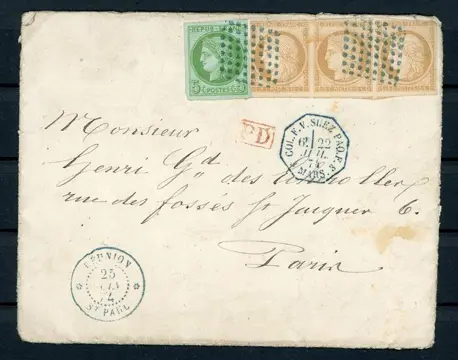 REPUB
5 POSTES
PD
COL. F. V. SUEZ PAQ. F.
22
MARS.
Monsieur
Henri Gd des
rue des fosses St Jacques 6.
Paris
REUNION
25
ST PAUL